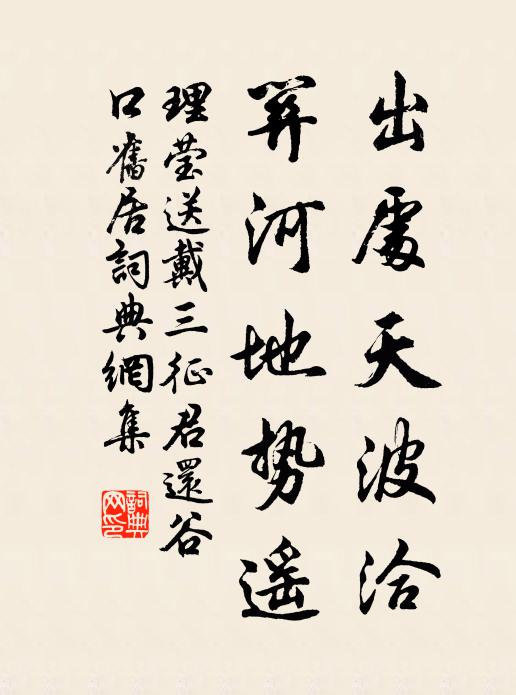 出處天波洽
关河地势遥
理莹送戴三征君還谷
口舊居詞典網集
詞典
网印